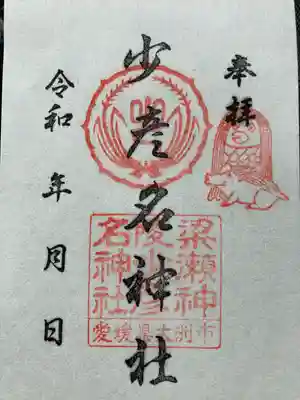 奉拝
少彦名神社
令和 年 月 日
梁瀬神
少彦
名神社
愛媛県大洲市